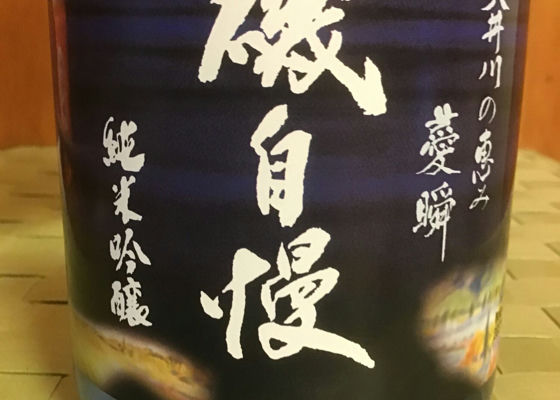 大井川の恵み
薆瞬
磯自慢
純米吟醸